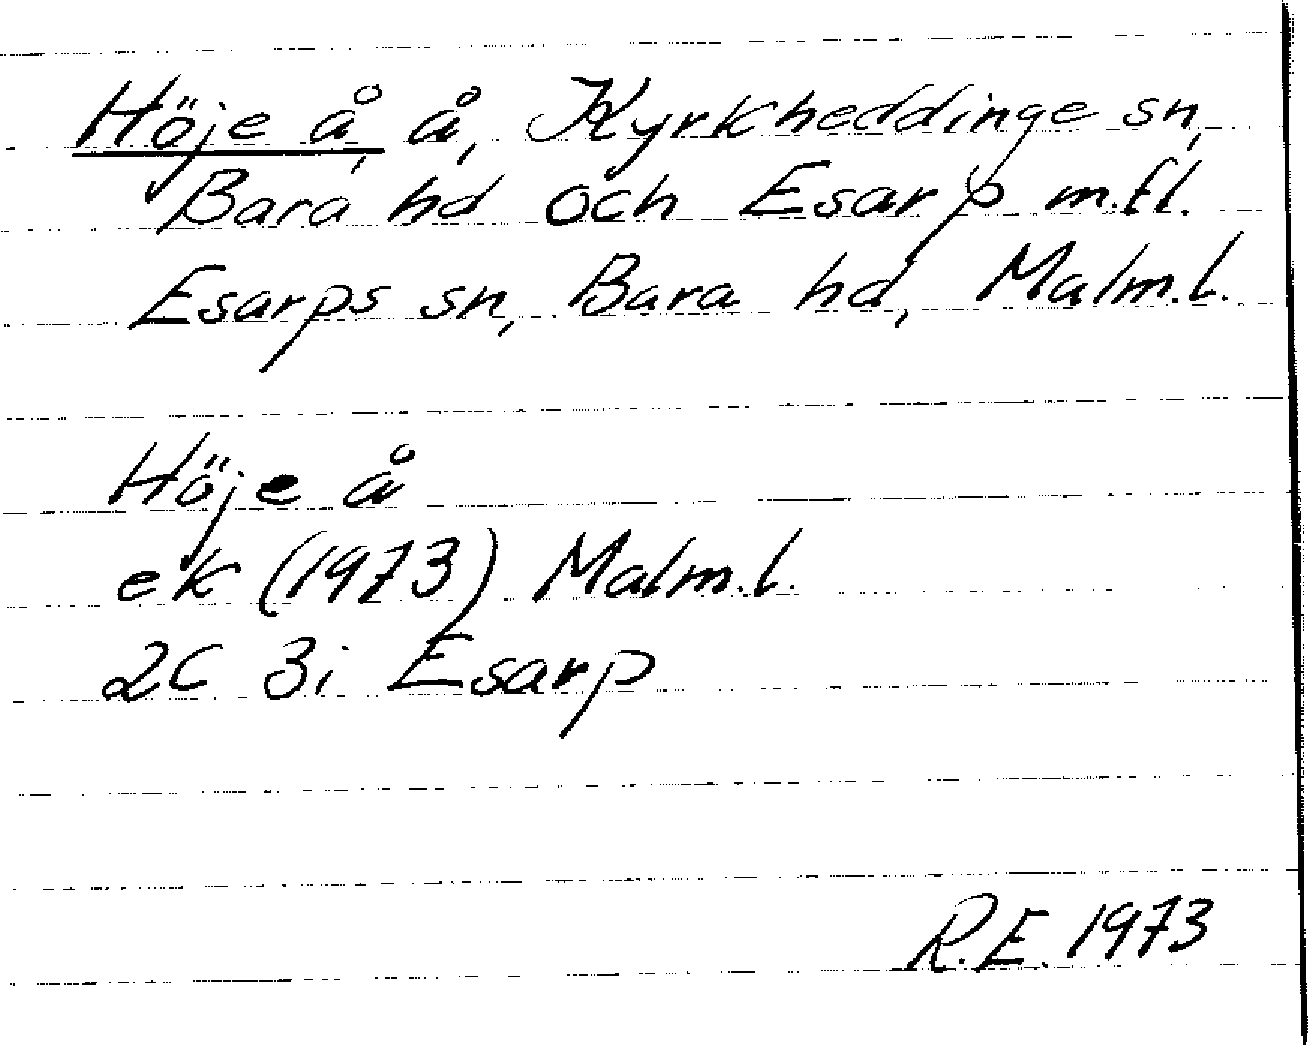 Höje å, å, Kyrkheddinge sn,
Bara hd och Esarp m.fl.
Esarps sn, Bara hd, Malm.l.
Höje å
ek (1973) Malm.l.
2C 3i Esarp
R.E. 1973